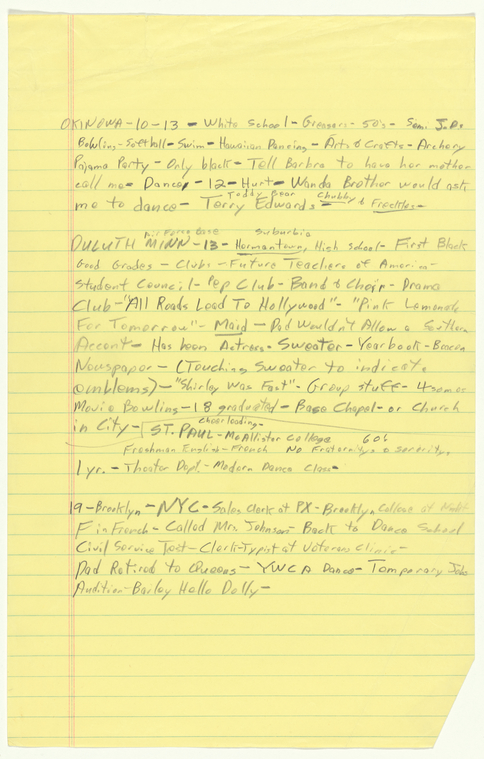 OKINOWA-10-13 - White School - Greasers - 50's - Sem. J.D.s
Bowling-Softball-Swim-Hawaiian Dancing - Arts & Crafts - Archery
Pajama Party - Only black - Tell Barbra to have her mother
call me - Dance, -12- Hurt - Wanda Brother would ask
Teddy Bear Chubby &
me to dance - Terry Edwards - Freckles -
Air Force Base Suburbia
DULUTH MINN - 13 - Hermantown, High School - First Black
Good Grades - Clubs - Future Teachers of America -
Student Council - Pep Club - Band & Choir - Drama
Club - "All Roads Lead To Hollywood" - "Pink Lemonade
For Tomorrow" - Maid - Dad Wouldn't Allow a Southern
Accent - Has been Actress - Sweater - Yearbook - Beacon
Newspaper - (Touching Sweater to indicate
emblems) - "Shirley Was Fast" - Group stuff - 4somes
Movie Bowling - 18 graduated - Base Chapel - or Church
Cheerleading -
in City - ST. PAUL - McAllister College 606
Freshman English - French No Fraternity & sorority,
1 yr. - Theater Dept. - Modern Dance Class -
19 - Brooklyn - NYC - Sales Clerk at PX - Brooklyn College at Night
F in French - Called Mrs. Johnson - Back to Dance School
Civil Service Test - Clerk-Typist at Veterans Clinic -
Dad Retired to Queens - YWCA Dance - Temporary Jobs
Audition - Bailey Hello Dolly -